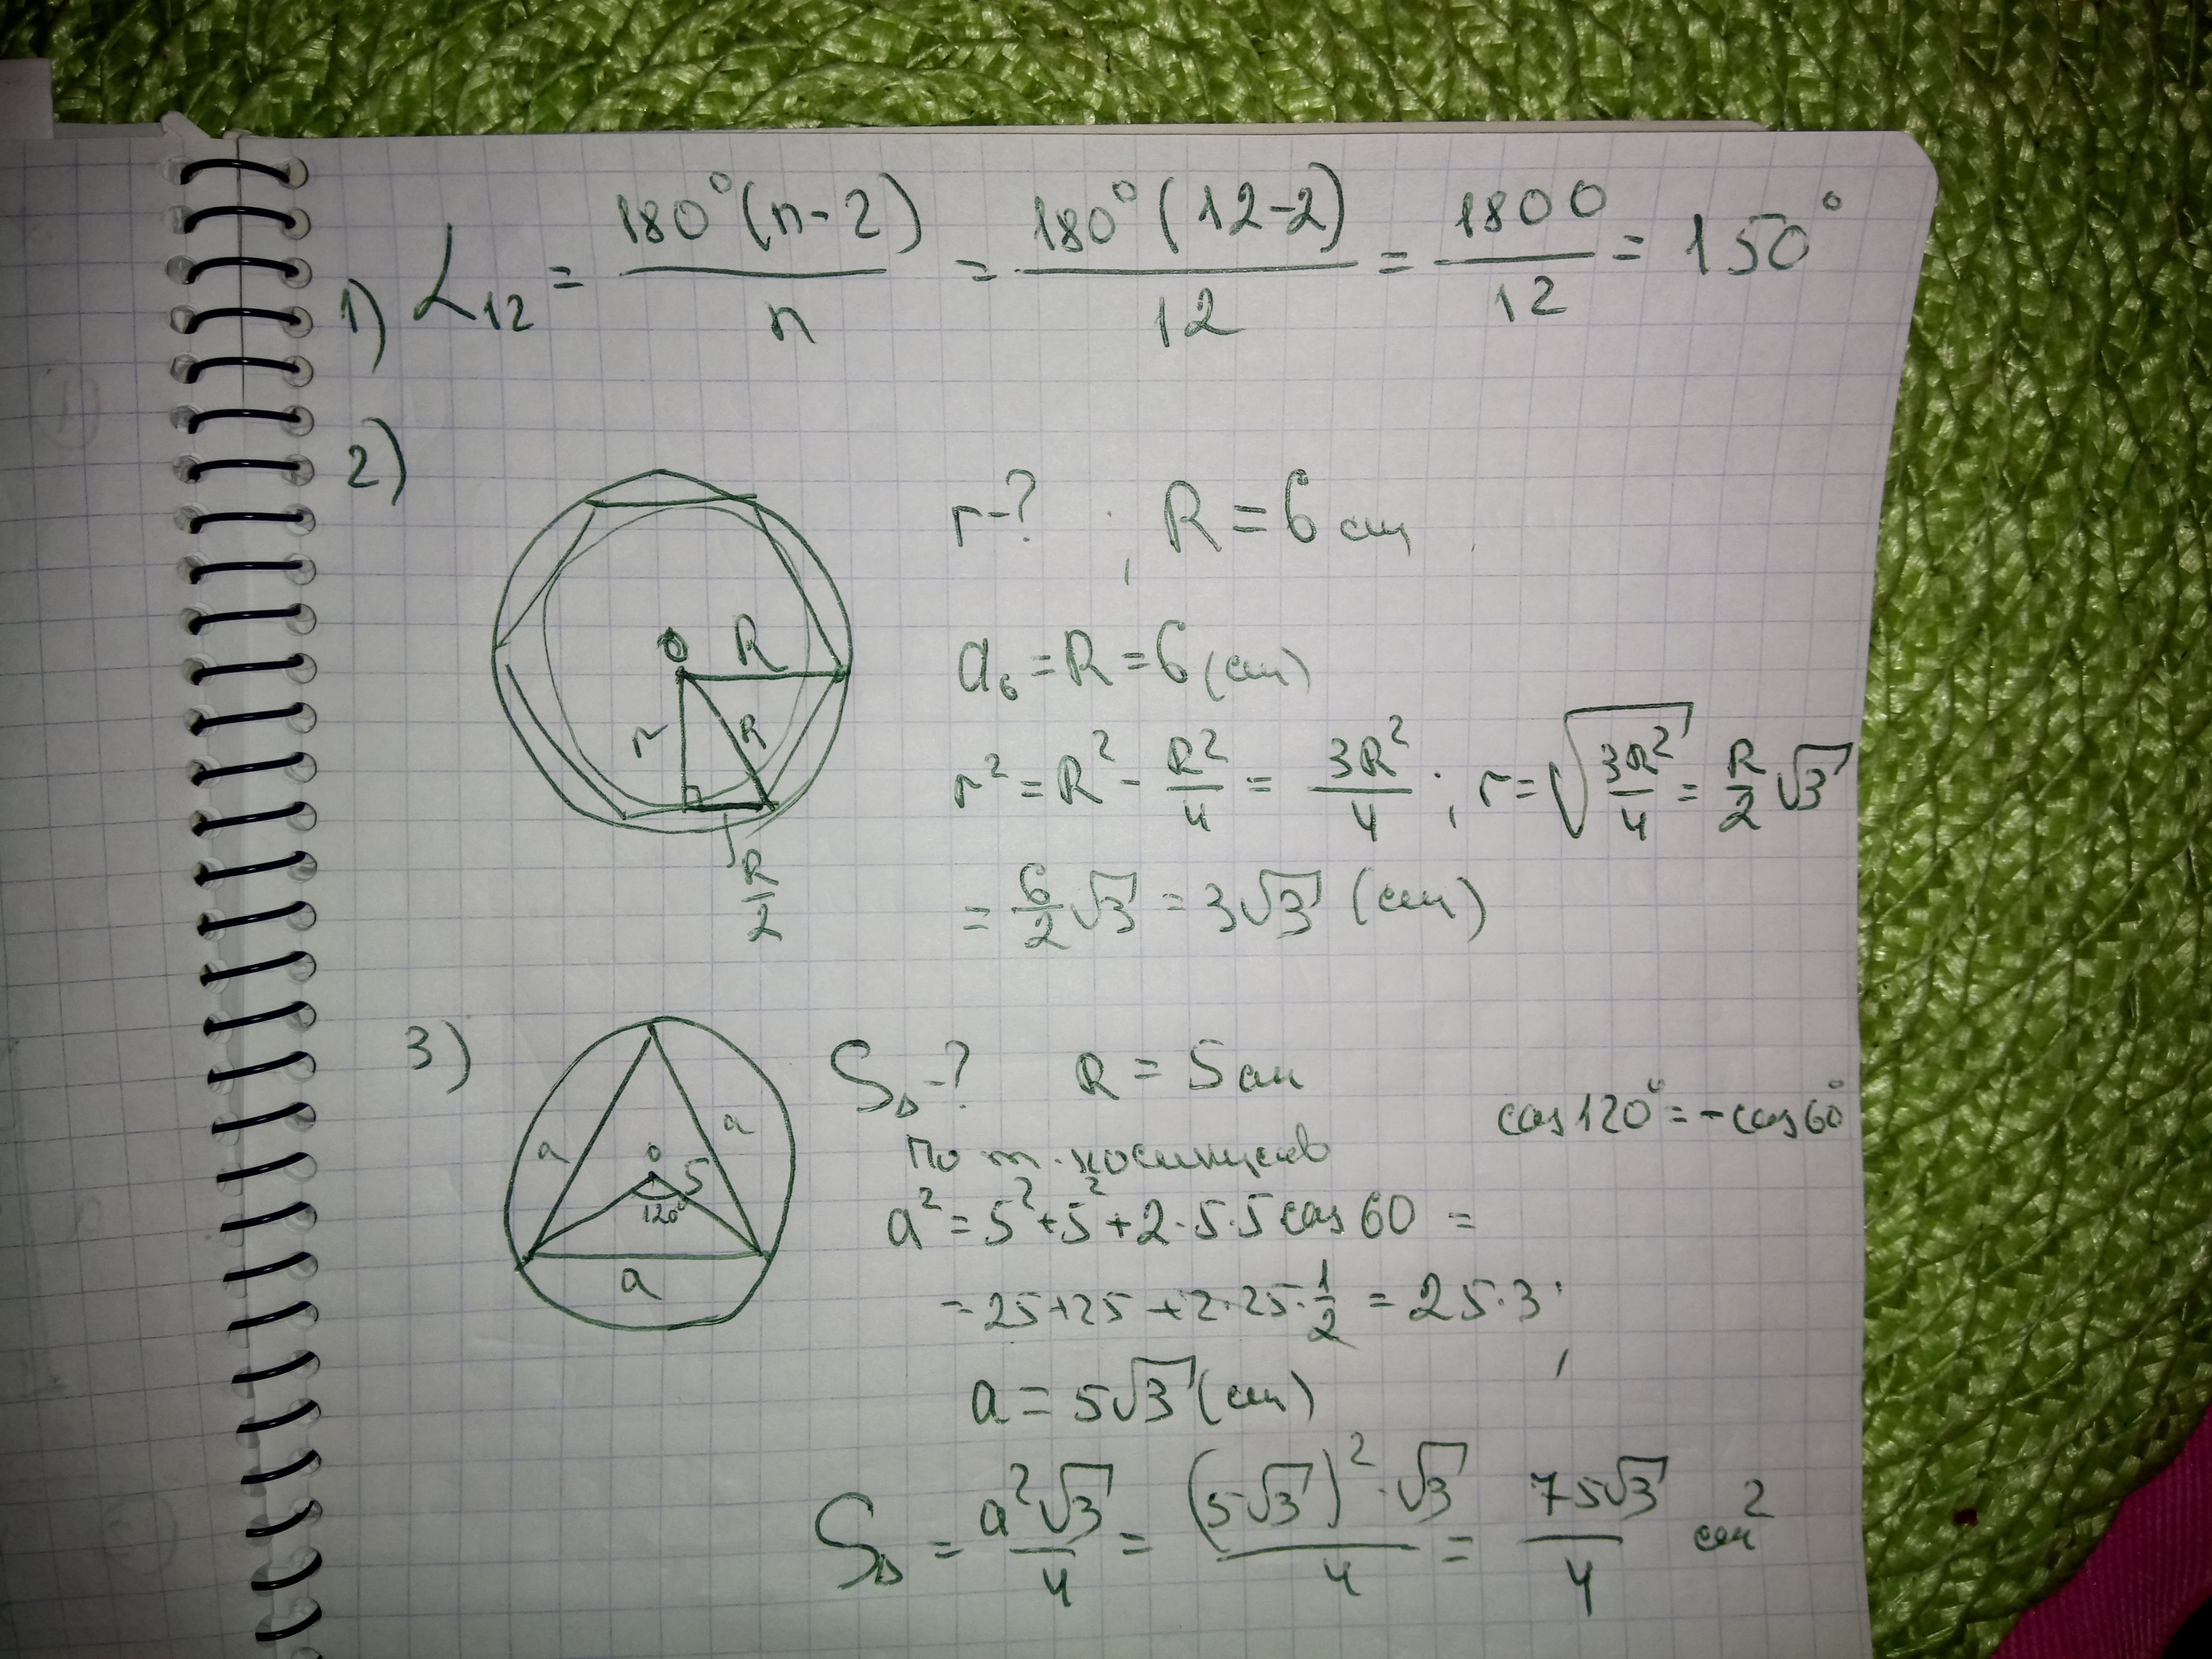 1) ∠₁₂ = 180°(n-2)/n = 180°(12-2)/12 = 1800/12 = 150°
2)
r-? ; R = 6 см
O R
a₆ = R = 6 (см)
r R
r² = R² - R²/4 = 3R²/4 ; r = √(3R²/4) = R/2 √3
R/2
= 6/2 √3 = 3√3 (см)
3)
S△-? R = 5 см
cos 120° = - cos 60°
a a
По т. косинусов
O 5
120°
a² = 5² + 5² + 2·5·5 cos 60 =
a
= 25 + 25 + 2·25·1/2 = 25·3 ;
a = 5√3 (см)
S△ = a²√3/4 = (5√3)²·√3/4 = 75√3/4 см²